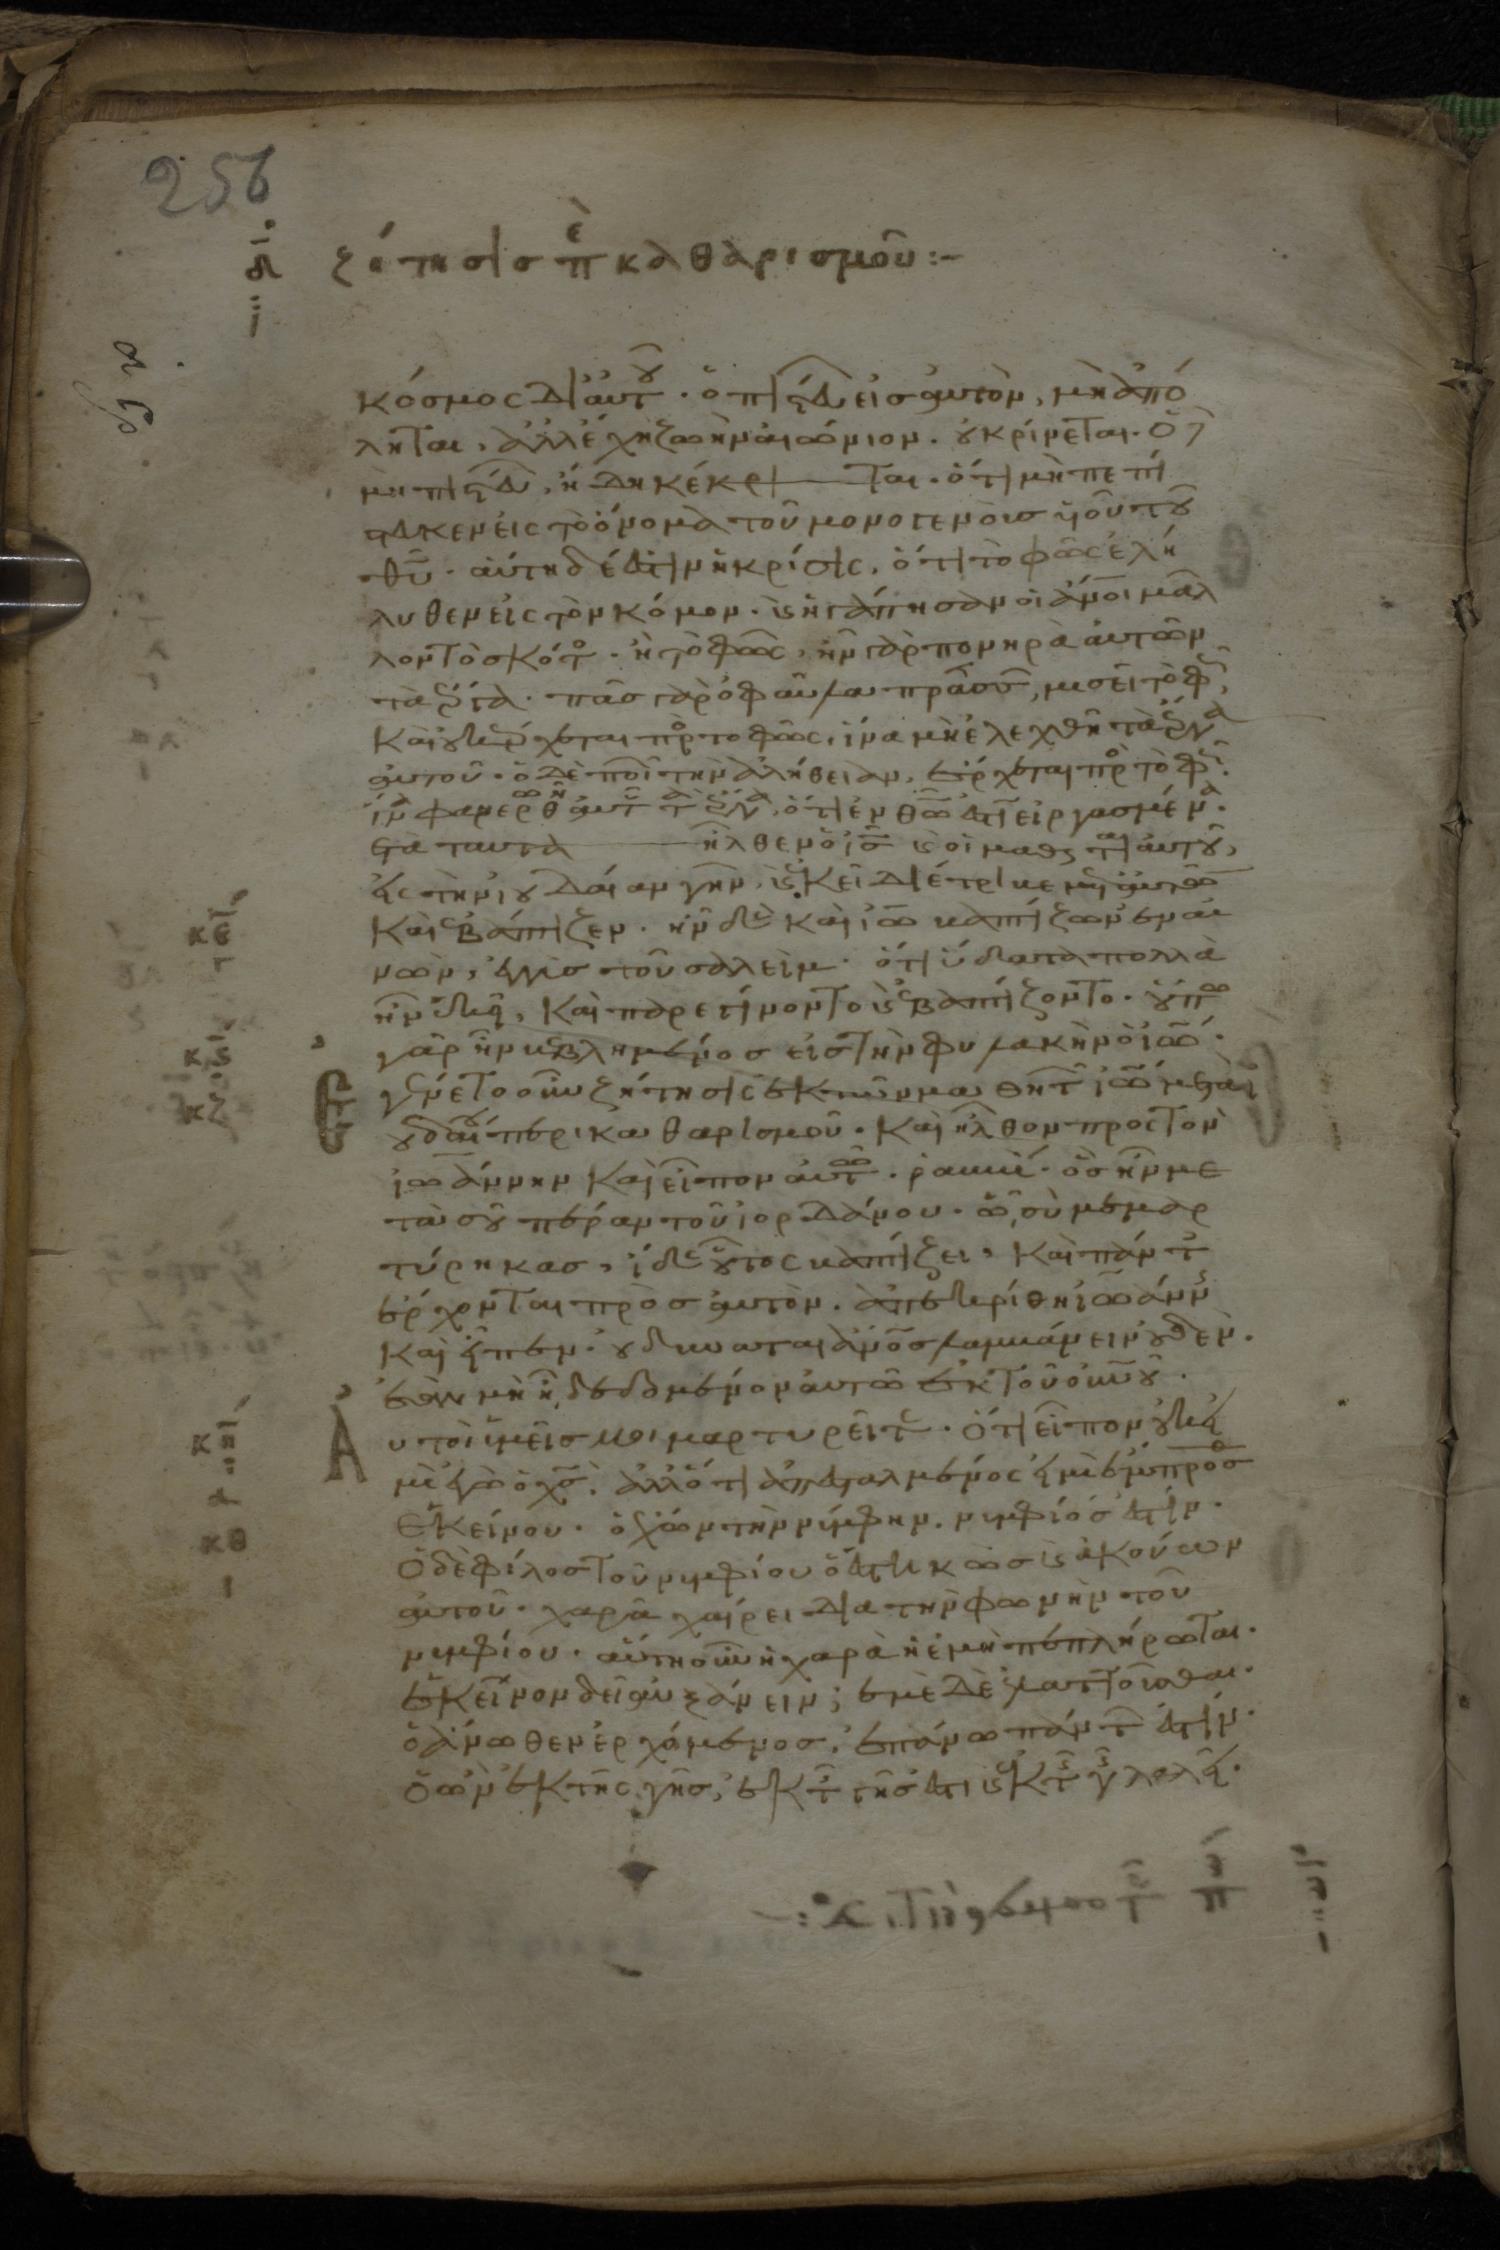 256
δ ζήτησις π καθαρισμοῦ :-
κόσμος δι αὐτοῦ · ὁ πιστεύων εἰς αὐτὸν, μὴ ἀπό
ληται, ἀλλ ἔχῃ ζωὴν αἰώνιον. οὐ κρίνεται · ὁ
μὴ πιστεύων, ἤδη κέκριται · ὅτι μὴ πεπί
στευκεν εἰς τὸ ὄνομα τοῦ μονογενοῦς υἱοῦ τοῦ
θυ · αὕτη δέ ἐστιν ἡ κρίσις, ὅτι τὸ φῶς ἐλή
λυθεν εἰς τὸν κόσμον · καὶ ἠγάπησαν οἱ ἄνοι μᾶλ
λον τὸ σκότος · ἢ τὸ φῶς, ἦν γὰρ πονηρὰ αὐτῶν
τὰ ἔργα · πᾶς γὰρ ὁ φαῦλα πράσσων, μισεῖ τὸ φῶς,
καὶ οὐκ ἔρχεται πρὸς τὸ φῶς, ἵνα μὴ ἐλεχθῆ τὰ ἔργα
αὐτοῦ · ὁ δὲ ποιῶν τὴν ἀλήθειαν, ἔρχεται πρὸς τὸ φῶς.
ἵνα φανερωθῆ αὐτοῦ τὰ ἔργα, ὅτι ἐν θω ἐστιν εἰργασμένα.
μετὰ ταῦτα ἦλθεν ὁ ις καὶ οἱ μαθηταὶ αὐτοῦ,
εἰς τὴν ἰουδαίαν γῆν, καὶ ἐκεῖ διέτριβε μετ αὐτῶν
καὶ ἐβάπτιζεν · ἦν δὲ καὶ ιω βαπτίζων ἐν αἰ
νὼν, ἐγγὺς τοῦ σαλεὶμ · ὅτι ὕδατα πολλὰ
ἦν ἐκεῖ, καὶ παρεγίνοντο καὶ ἐβαπτίζοντο · οὔπω
γὰρ ἦν βεβλημένος εἰς τὴν φυλακὴν ὁ ιω ·
Ἐγένετο οὖν ζήτησις ἐκ τῶν μαθητῶν ιω μετὰ ἰ
ουδαίου περὶ καθαρισμοῦ · καὶ ἦλθον πρὸς τὸν
ιωάννην καὶ εἶπον αὐτῶ · ῥαββί · ὃς ἦν με
τὰ σοῦ πέραν τοῦ ἰορδάνου · ὧ σὺ μεμαρ
τύρηκας, ἴδε οὗτος βαπτίζει, καὶ πάντες
ἔρχονται πρὸς αὐτὸν. ἀπεκρίθη ιωάννης
καὶ εἶπεν · οὐ δύναται ἄνος λαμβάνειν οὐδὲν.
ἐὰν μὴ ἦ δεδομένον αὐτῶ ἐκ τοῦ οὐνοῦ ·
Ἀυτοὶ ὑμεῖς μοι μαρτυρεῖτε · ὅτι εἶπον οὐκ εἰ
μὶ ἐγὼ ὁ χς. ἀλλ ὅτι ἀπεσταλμένος εἰμὶ ἔμπροσ
ἐκείνου · ὁ ἔχων τὴν νύμφην, νυμφίος ἐστίν ·
ὁ δὲ φίλος τοῦ νυμφίου ὁ ἑστηκὼς καὶ ἀκούων
αὐτοῦ · χαρᾶ χαίρει διὰ τὴν φωνὴν τοῦ
νυμφίου · αὕτη οὖν ἡ χαρὰ ἡ ἐμὴ πεπλήρωται ·
ἐκεῖνον δεῖ αὐξάνειν, ἐμὲ δὲ ἐλαττοῦσθαι ·
ὁ ἄνωθεν ἐρχόμενος, ἐπάνω πάντων ἐστίν ·
ὁ ὢν ἐκ τῆς γῆς, ἐκ τῆς γῆς ἐστι καὶ ἐκ τῆς γῆς λαλεῖ ·
κε
κς
κζ
κη
κθ